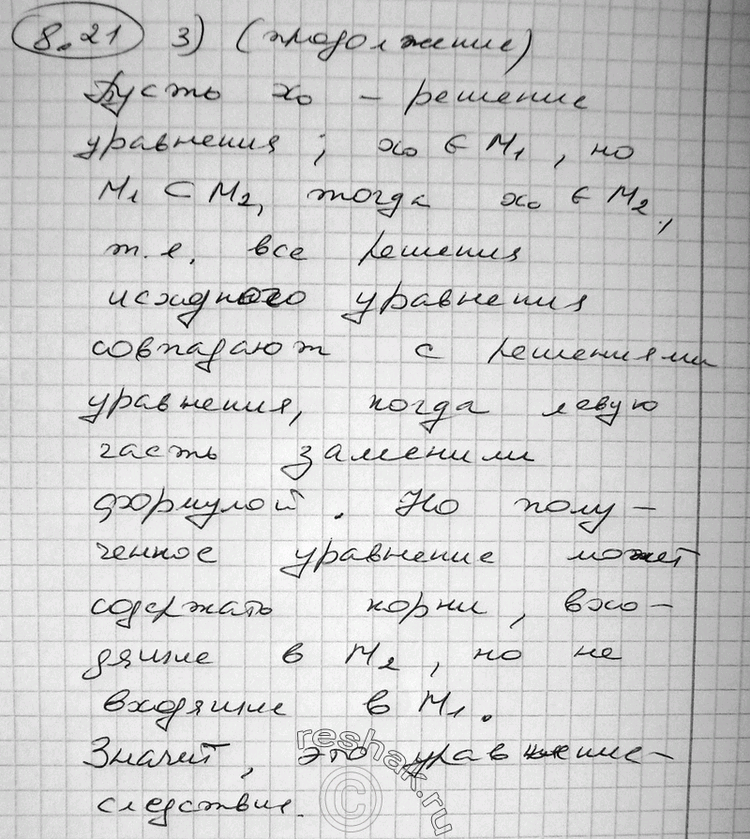 8.21 3) (продолжение)
Пусть x₀ – решение
уравнения; x₀ ∈ M₁, но
M₁ ⊂ M₂, тогда x₀ ∈ M₂,
т.е. все решения
исходного уравнения
совпадают с решениями
уравнения, когда левую
часть заменим
формулой. Но полу-
ченное уравнение может
содержать корни, вхо-
дящие в M₂, но не
входящие в M₁.
Значит, это уравнение-
следствия.
reshak.ru
©